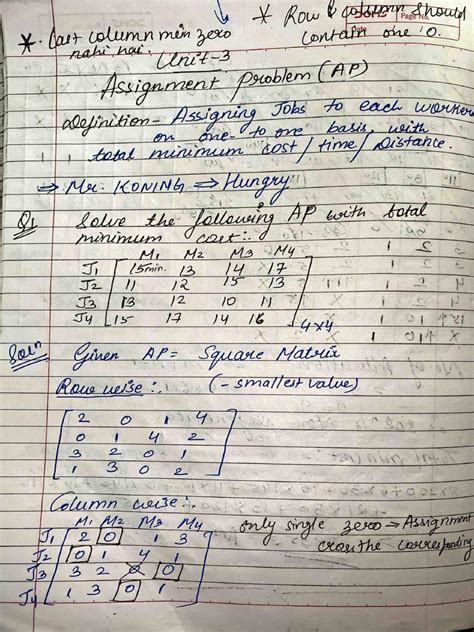 * Row & column should
contain one 0.
*. Last column mein zero
nahi hai.
Page No.
Date
Unit-3
Assignment Problem (AP)
Definition- Assigning Jobs to each workers
on one- to one basis, with
total minimum cost / time / Distance.
⇒ Mr. KONING ⇒ Hungry
Q1 Solve the following AP with total
minimum cost:-
M1 M2 M3 M4
J1 15min. 13 14 17
J2 11 12 15 13
J3 13 12 10 11
J4 15 17 14 16
4x4
Soln Given AP = Square Matrix
Row wise :. (- smallest value)
2 0 1 4
0 1 4 2
3 2 0 1
1 3 0 2
Column wise:.
M1 M2 M3 M4
J1 2 0 1 3
J2 0 1 4 1
J3 3 2 0 0
J4 1 3 0 1
only single zero ⇒ Assignment
cross the corresponding